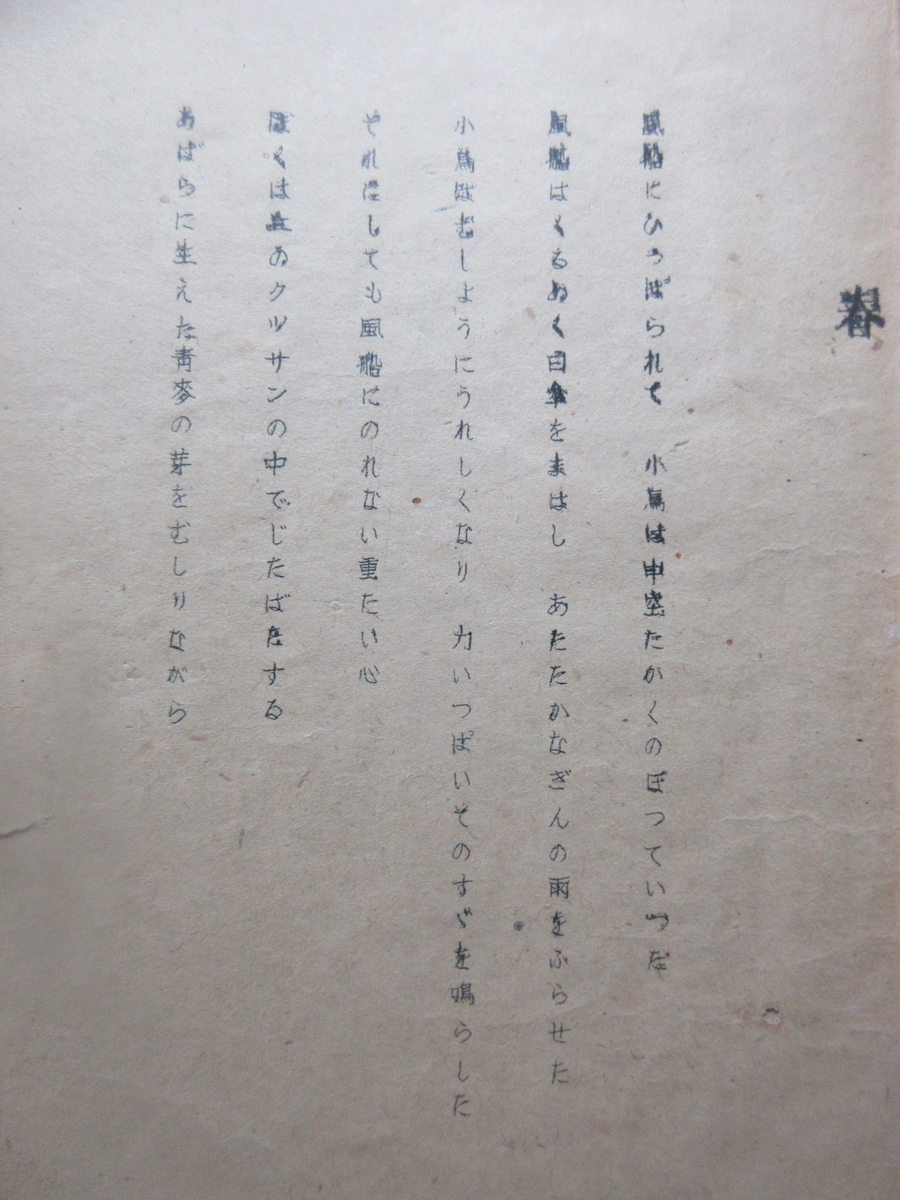 春
風船にひつぱられて　小鳥は中空たかくのぼつていつた
風船はくるめく日傘をまはし　あたたかなぎんの雨をふらせた
小鳥はむしようにうれしくなり　力いつぱいそのすゞを鳴らした
それにしても風船にのれない重たい心
ぼくは のクツサンの中でじたばたする
あばらに生えた青麥の芽をむしりながら